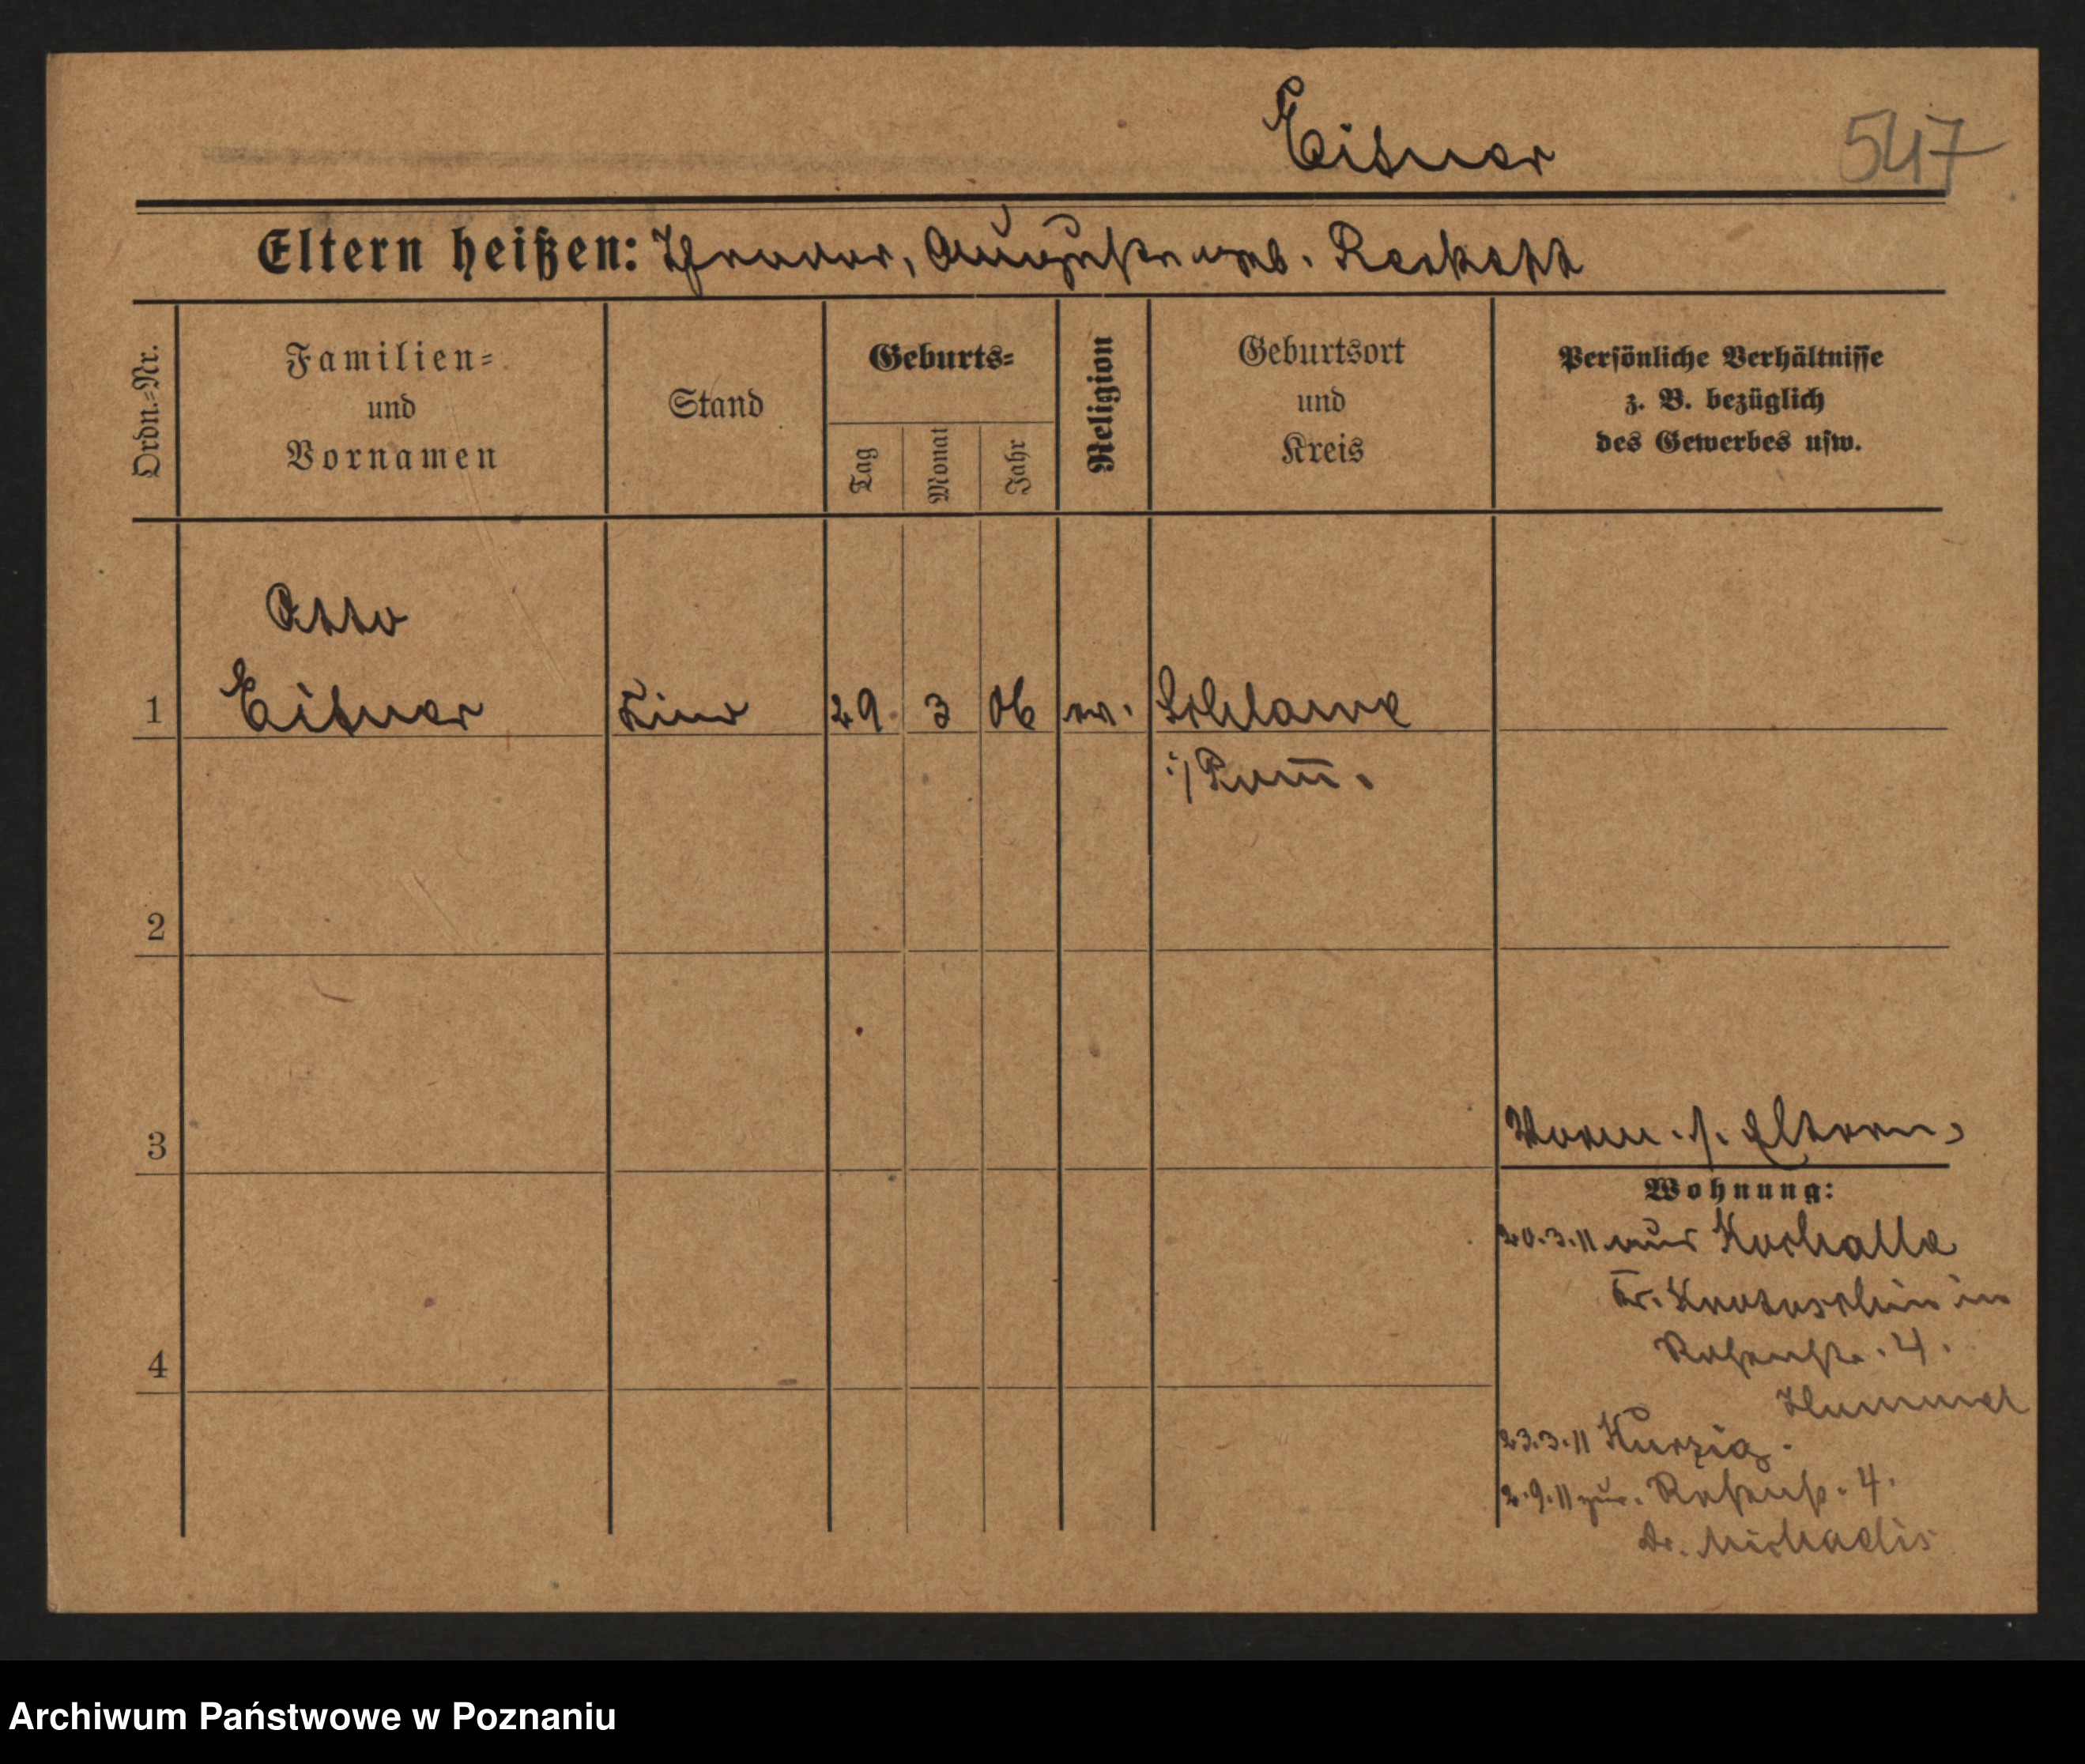 Eitner
547
Eltern heißen: Theodor, Auguste geb. Reckoff
Ordn.=Nr.
Familien=
und
Vornamen
Stand
Geburts=
Tag
Monat
Jahr
Religion
Geburtsort
und
Kreis
Persönliche Verhältnisse
z. B. bezüglich
des Gewerbes usw.
Otto
1 Eitner Kind 29 3 06 ev. Schlawe
i/ Pom̅.
2
3
Vorm. s. Eltern
Wohnung:
20.3.11 aus Kochalle
Kr. Krotoschin in
Rosenstr. 4.
4
Hummel
23.3.11 Kurzig.
2.9.11 zur. Rosenstr. 4.
Dr. Michaelis
Archiwum Państwowe w Poznaniu